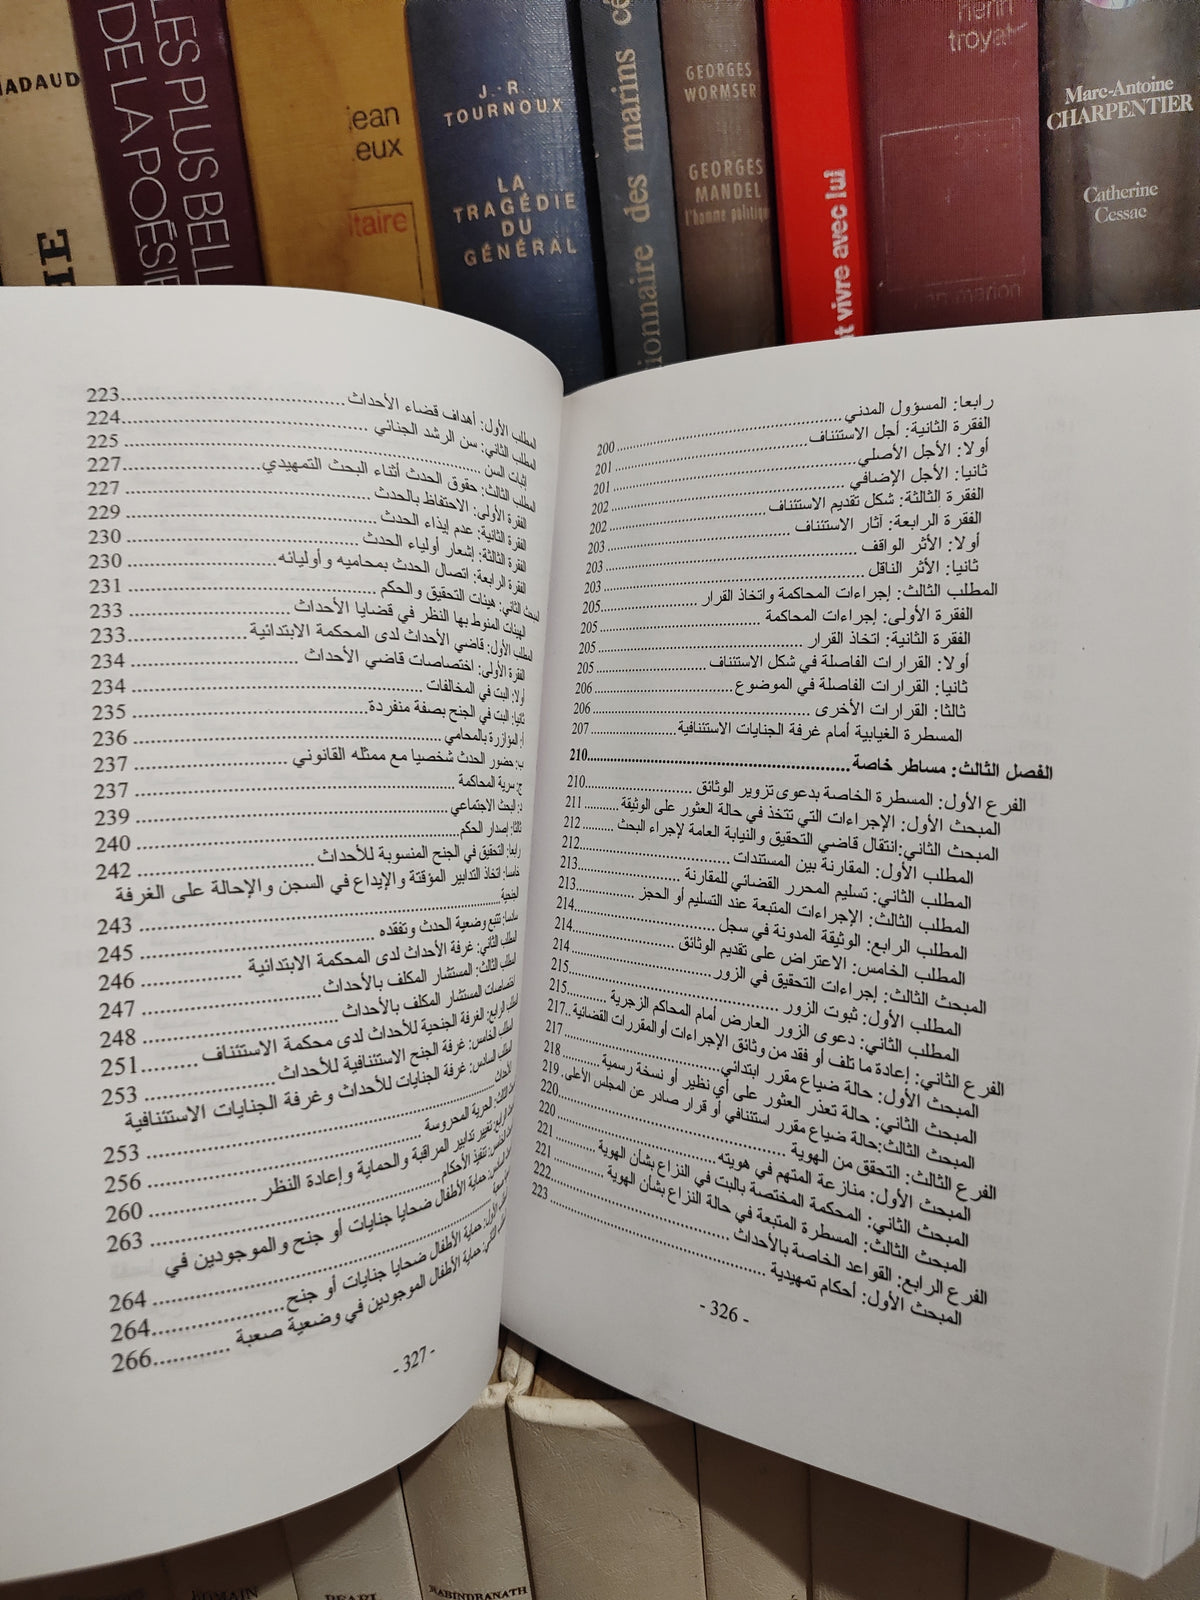 ADAUD
LES PLUS BELL
DE LA POÉSIE
ean
eux
ltaire
J.-R.
TOURNOUX
LA
TRAGÉDIE
DU
GÉNÉRAL
ionnaire des marins cé
GEORGES
WORMSER
GEORGES
MANDEL
l'homme politique
t vivre avec lui
henri
troyat
Marc-Antoine
CHARPENTIER
Catherine
Cessac
رابعا: المسؤول المدني ........ 200
الفقرة الثانية: أجل الاستئناف ........ 201
أولا: الأجل الأصلي ........ 201
ثانيا: الأجل الإضافي ........ 202
الفقرة الثالثة: شكل تقديم الاستئناف ........ 202
الفقرة الرابعة: آثار الاستئناف ........ 203
أولا: الأثر الواقف ........ 203
ثانيا: الأثر الناقل ........ 203
المطلب الثالث: إجراءات المحاكمة واتخاذ القرار ........ 205
الفقرة الأولى: إجراءات المحاكمة ........ 205
الفقرة الثانية: اتخاذ القرار ........ 205
أولا: القرارات الفاصلة في شكل الاستئناف ........ 205
ثانيا: القرارات الفاصلة في الموضوع ........ 206
ثالثا: القرارات الأخرى ........ 206
المسطرة الغيابية أمام غرفة الجنايات الاستئنافية ........ 207
الفصل الثالث: مساطر خاصة ........ 210
الفرع الأول: المسطرة الخاصة بدعوى تزوير الوثائق ........ 210
المبحث الأول: الإجراءات التي تتخذ في حالة العثور على الوثيقة ........ 211
المبحث الثاني:انتقال قاضي التحقيق والنيابة العامة لإجراء البحث ........ 212
المطلب الأول: المقارنة بين المستندات ........ 212
المطلب الثاني: تسليم المحرر القضائي للمقارنة ........ 213
المطلب الثالث: الإجراءات المتبعة عند التسليم أو الحجز ........ 213
المطلب الرابع: الوثيقة المدونة في سجل ........ 214
المطلب الخامس: الاعتراض على تقديم الوثائق ........ 214
المبحث الثالث: إجراءات التحقيق في الزور ........ 214
المطلب الأول: ثبوت الزور ........ 215
المطلب الثاني: دعوى الزور العارض أمام المحاكم الزجرية ........ 215
الفرع الثاني: إعادة ما تلف أو فقد من وثائق الإجراءات أو المقررات القضائية ..217
المبحث الأول: حالة ضياع مقرر ابتدائي ........ 217
المبحث الثاني: حالة تعذر العثور على أي نظير أو نسخة رسمية ........ 218
المبحث الثالث:حالة ضياع مقرر استئنافي أو قرار صادر عن المجلس الأعلى. 219
الفرع الثالث: التحقق من الهوية ........ 220
المبحث الأول: منازعة المتهم في هويته ........ 220
المبحث الثاني: المحكمة المختصة بالبت في النزاع بشأن الهوية ........ 221
المبحث الثالث: المسطرة المتبعة في حالة النزاع بشأن الهوية ........ 221
الفرع الرابع: القواعد الخاصة بالأحداث ........ 222
المبحث الأول: أحكام تمهيدية ........ 223
- 326 -
المطلب الأول: أهداف قضاء الأحداث ........ 223
المطلب الثاني: سن الرشد الجنائي ........ 224
إثبات السن ........ 225
المطلب الثالث: حقوق الحدث أثناء البحث التمهيدي ........ 227
الفقرة الأولى: الاحتفاظ بالحدث ........ 227
الفقرة الثانية: عدم إيذاء الحدث ........ 229
الفقرة الثالثة: إشعار أولياء الحدث ........ 230
الفقرة الرابعة: اتصال الحدث بمحاميه وأوليائه ........ 230
المبحث الثاني: هيئات التحقيق والحكم ........ 231
الهيئات المنوط بها النظر في قضايا الأحداث ........ 233
المطلب الأول: قاضي الأحداث لدى المحكمة الابتدائية ........ 233
الفقرة الأولى: اختصاصات قاضي الأحداث ........ 234
أولا: البت في المخالفات ........ 234
ثانيا: البت في الجنح بصفة منفردة ........ 235
أ- المؤازرة بالمحامي ........ 236
ب: حضور الحدث شخصيا مع ممثله القانوني ........ 237
ج: سرية المحاكمة ........ 237
د: البحث الاجتماعي ........ 239
ثالثا: إصدار الحكم ........ 240
رابعا: التحقيق في الجنح المنسوبة للأحداث ........ 242
خامسا: اتخاذ التدابير المؤقتة والإيداع في السجن والإحالة على الغرفة
الجنحية ........ 243
سادسا: تتبع وضعية الحدث وتفقده ........ 245
المطلب الثاني: غرفة الأحداث لدى المحكمة الابتدائية ........ 246
المطلب الثالث: المستشار المكلف بالأحداث ........ 247
اختصاصات المستشار المكلف بالأحداث ........ 248
المطلب الرابع: الغرفة الجنحية للأحداث لدى محكمة الاستئناف ........ 251
المطلب الخامس: غرفة الجنح الاستئنافية للأحداث ........ 253
المطلب السادس: غرفة الجنايات للأحداث وغرفة الجنايات الاستئنافية
للأحداث ........ 253
الثالث: الحرية المحروسة ........ 256
الرابع: تغيير تدابير المراقبة والحماية وإعادة النظر ........ 260
الخامس: تنفيذ الأحكام ........ 263
السادس: حماية الأطفال ضحايا جنايات أو جنح والموجودين في
صعبة ........ 264
الأول: حماية الأطفال ضحايا جنايات أو جنح ........ 264
الثاني: حماية الأطفال الموجودين في وضعية صعبة ........ 266
- 327 -
ROMAIN
PEARL
RABINDRANATH